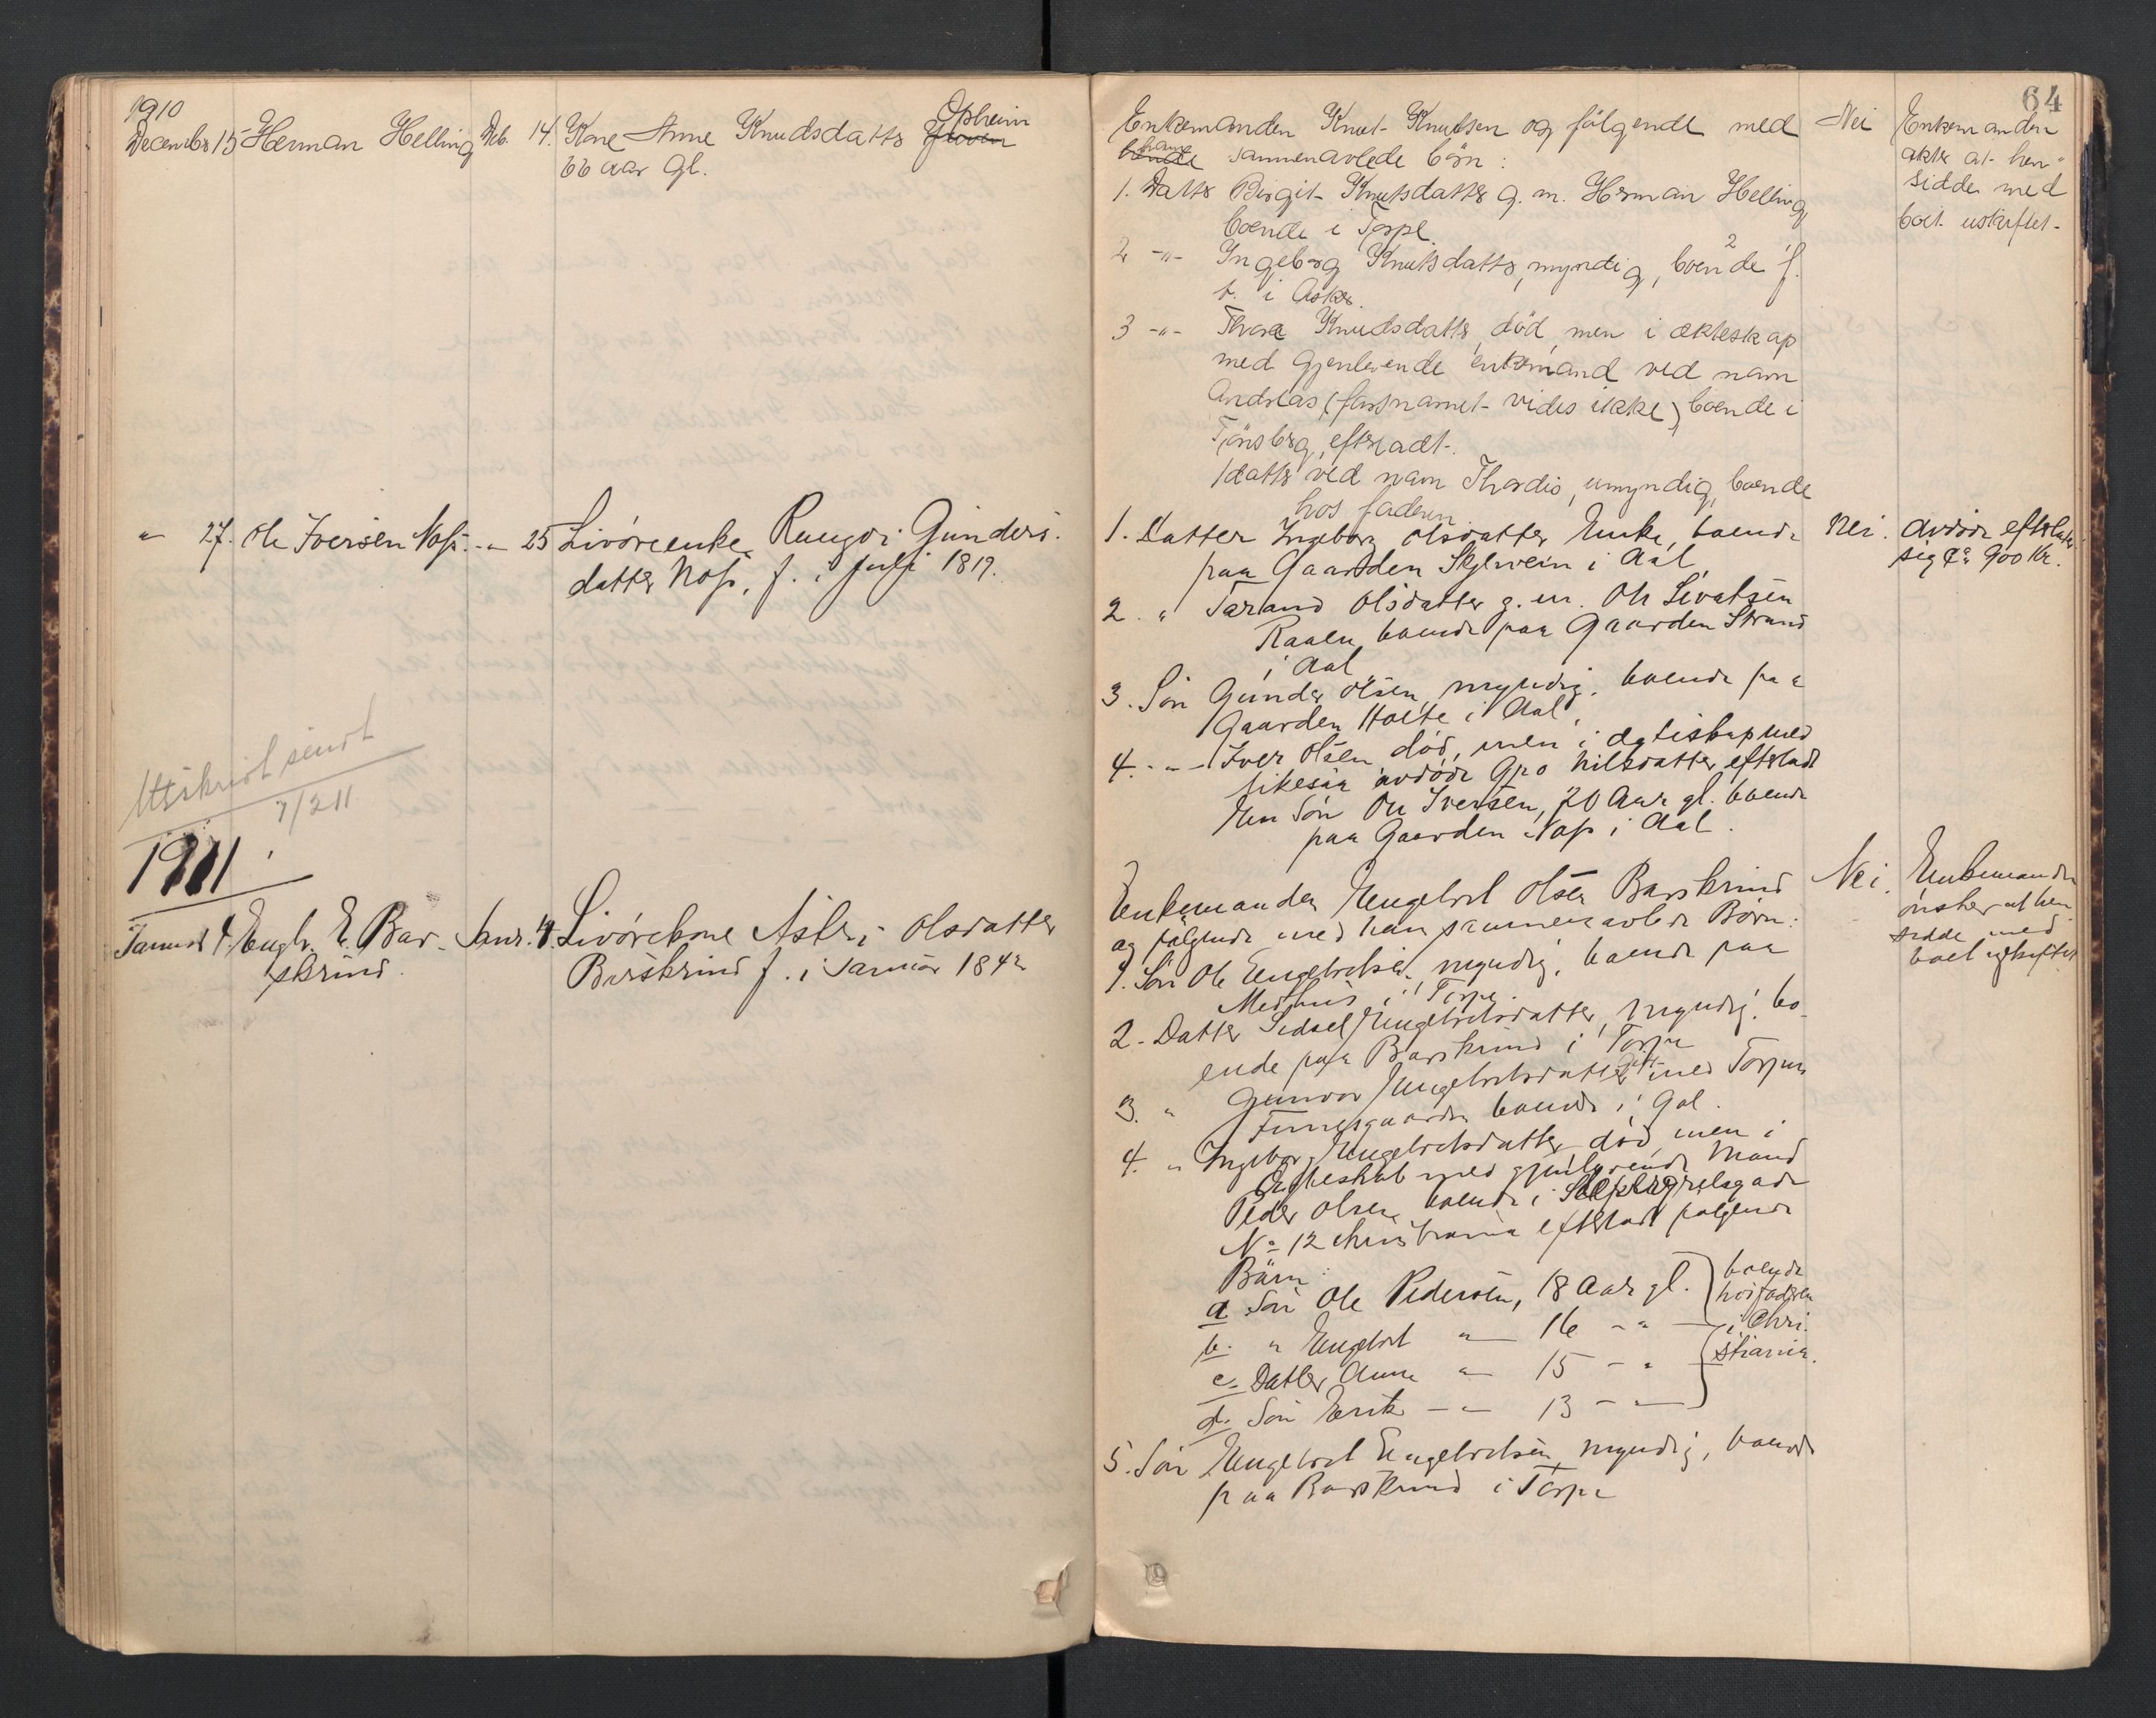 1910
December 15 Herman Helling Deb. 14. Kone Anne Knudsdatter Opheim
66 aar gl.
" 27. Ole Iversen Noss. - " 25 Livöreenke Rangdi Gunders-
datter Noss, f. i Juli 1819.
Utskrift sendt
7/2 11
1911
Januar 4. Engebr. E. Bar- Janr. 4. Livörekone Astri Olsdatter
skrind.
Barskrind f. i Januar 1842
64
Enkemanden Knut Knutsen og følgende med
ham sammenavlede børn:
1. Datter Birgit Knutsdatter g. m. Herman Helling
boende i Torpe.
2 -"- Ingeborg Knutsdatter, myndig, boende f.
t. i Asker.
3 -"- Thora Knudsdatter, død, men i ekteskap
med gjenlevende enkemand ved navn
Andreas (farsnavnet vides ikke) boende i
Tönsberg, efterladt.
1 datter ved navn Thordis, umyndig, boende
hos faderen
Nei
Enkemanden
akter at hen-
sidde med
boet uskiftet-
1. Datter Ingeborg Olsdatter Enke, boende
paa Gaarden Skjelvein i Aal
2. " Tarand Olsdatter g. m. Ole Sivatsen
Raaen boende paa Gaarden Strand
i Aal
3. Sön Gunder Olsen, myndig, boende paa
Gaarden Holte i Aal,
4. - " - Iver Olsen död, men i egteskap med
likesaa avdöde Gro Nilsdatter efterladt
Een Sön Ole Iversen, 20 Aar gl. boende
paa Gaarden Noss i Aal.
Nei.
Avdöde efterlater
sig Ca 900 Kr.
Enkemanden Engebret Olsen Barskrind
og fölgende med ham sammenavlede Börn:
1. Sön Ole Engebretsen, myndig, boende paa
Medhus i Torpe.
2. Datter Sidsel Engebretsdatter, myndig, bo-
ende paa Barskrind i Torpe
3. " Gunvor Engebretsdatter gift med Torjus
Finnesgaarden boende i Gol.
4. " Ingeborg Engebretsdatter död, men i
Ægteskab med gjenlevende Mand
Peder Olsen boende i
No 12 Christiania efterladt fölgende
Börn:
a Sön Ole Pedersen, 18 Aar gl.
b. " Engebret " 16 - "
c. Datter Anne " 15 - "
d. Sön Erik - " 13 - "
boende
hos faderen
i Chri-
stiania.
5. Sön Engebret Engebretsen, myndig, boende
paa Barskrind i Torpe
Nei.
Enkemanden
önsker at hen-
sidde med
boet uskiftet